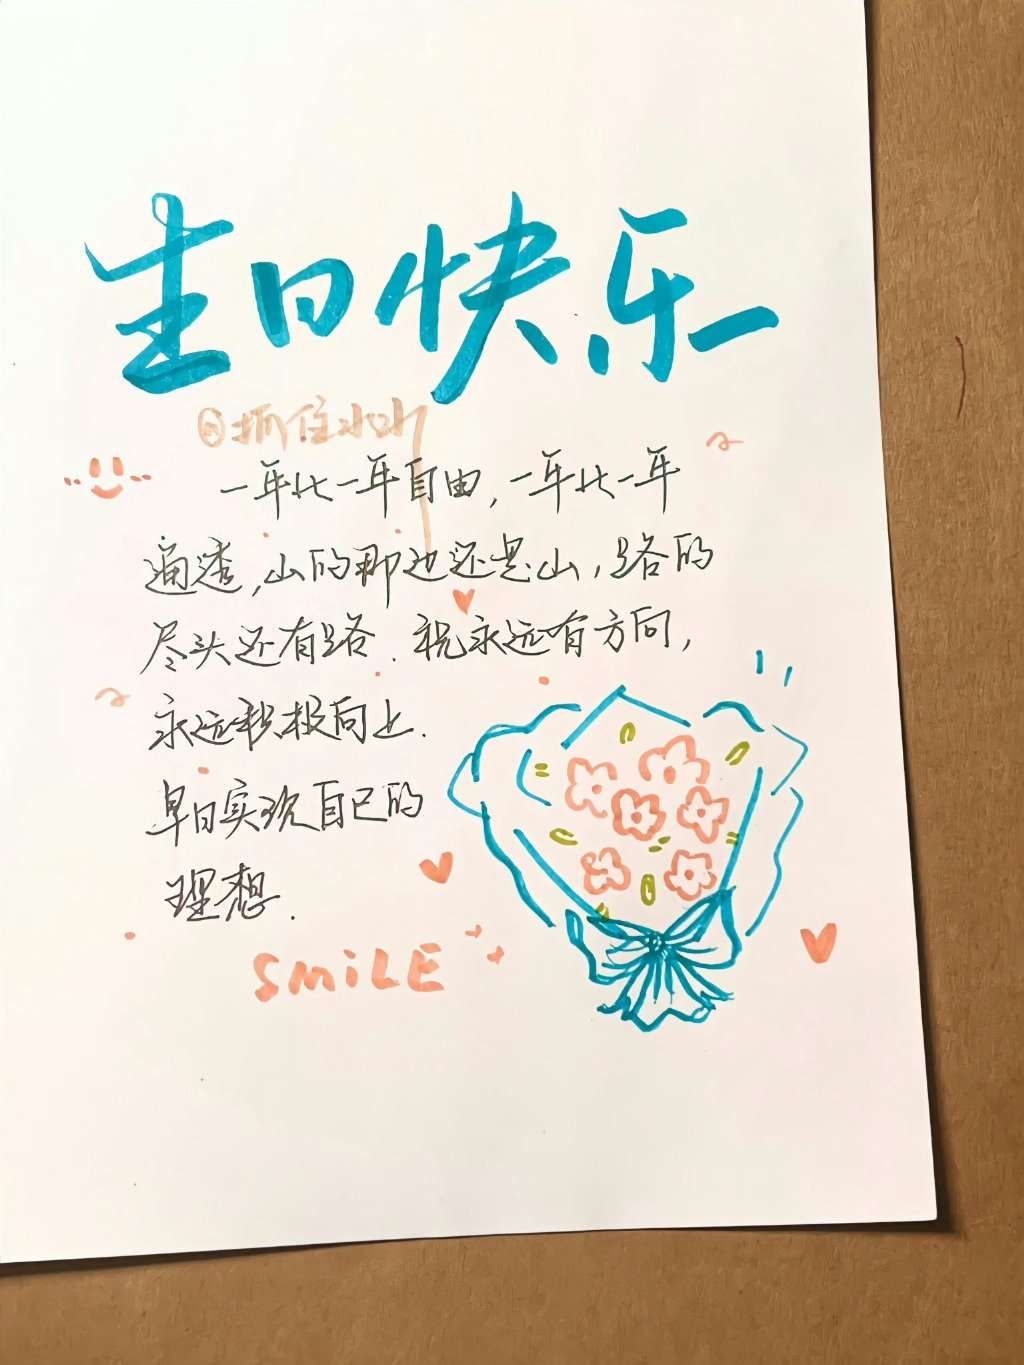 生日快乐
@抓住水水
一年比一年自由,一年比一年
通透,山的那边还是山,路的
尽头还有路.祝永远有方向,
永远积极向上.
早日实现自己的
理想.
SMiLE